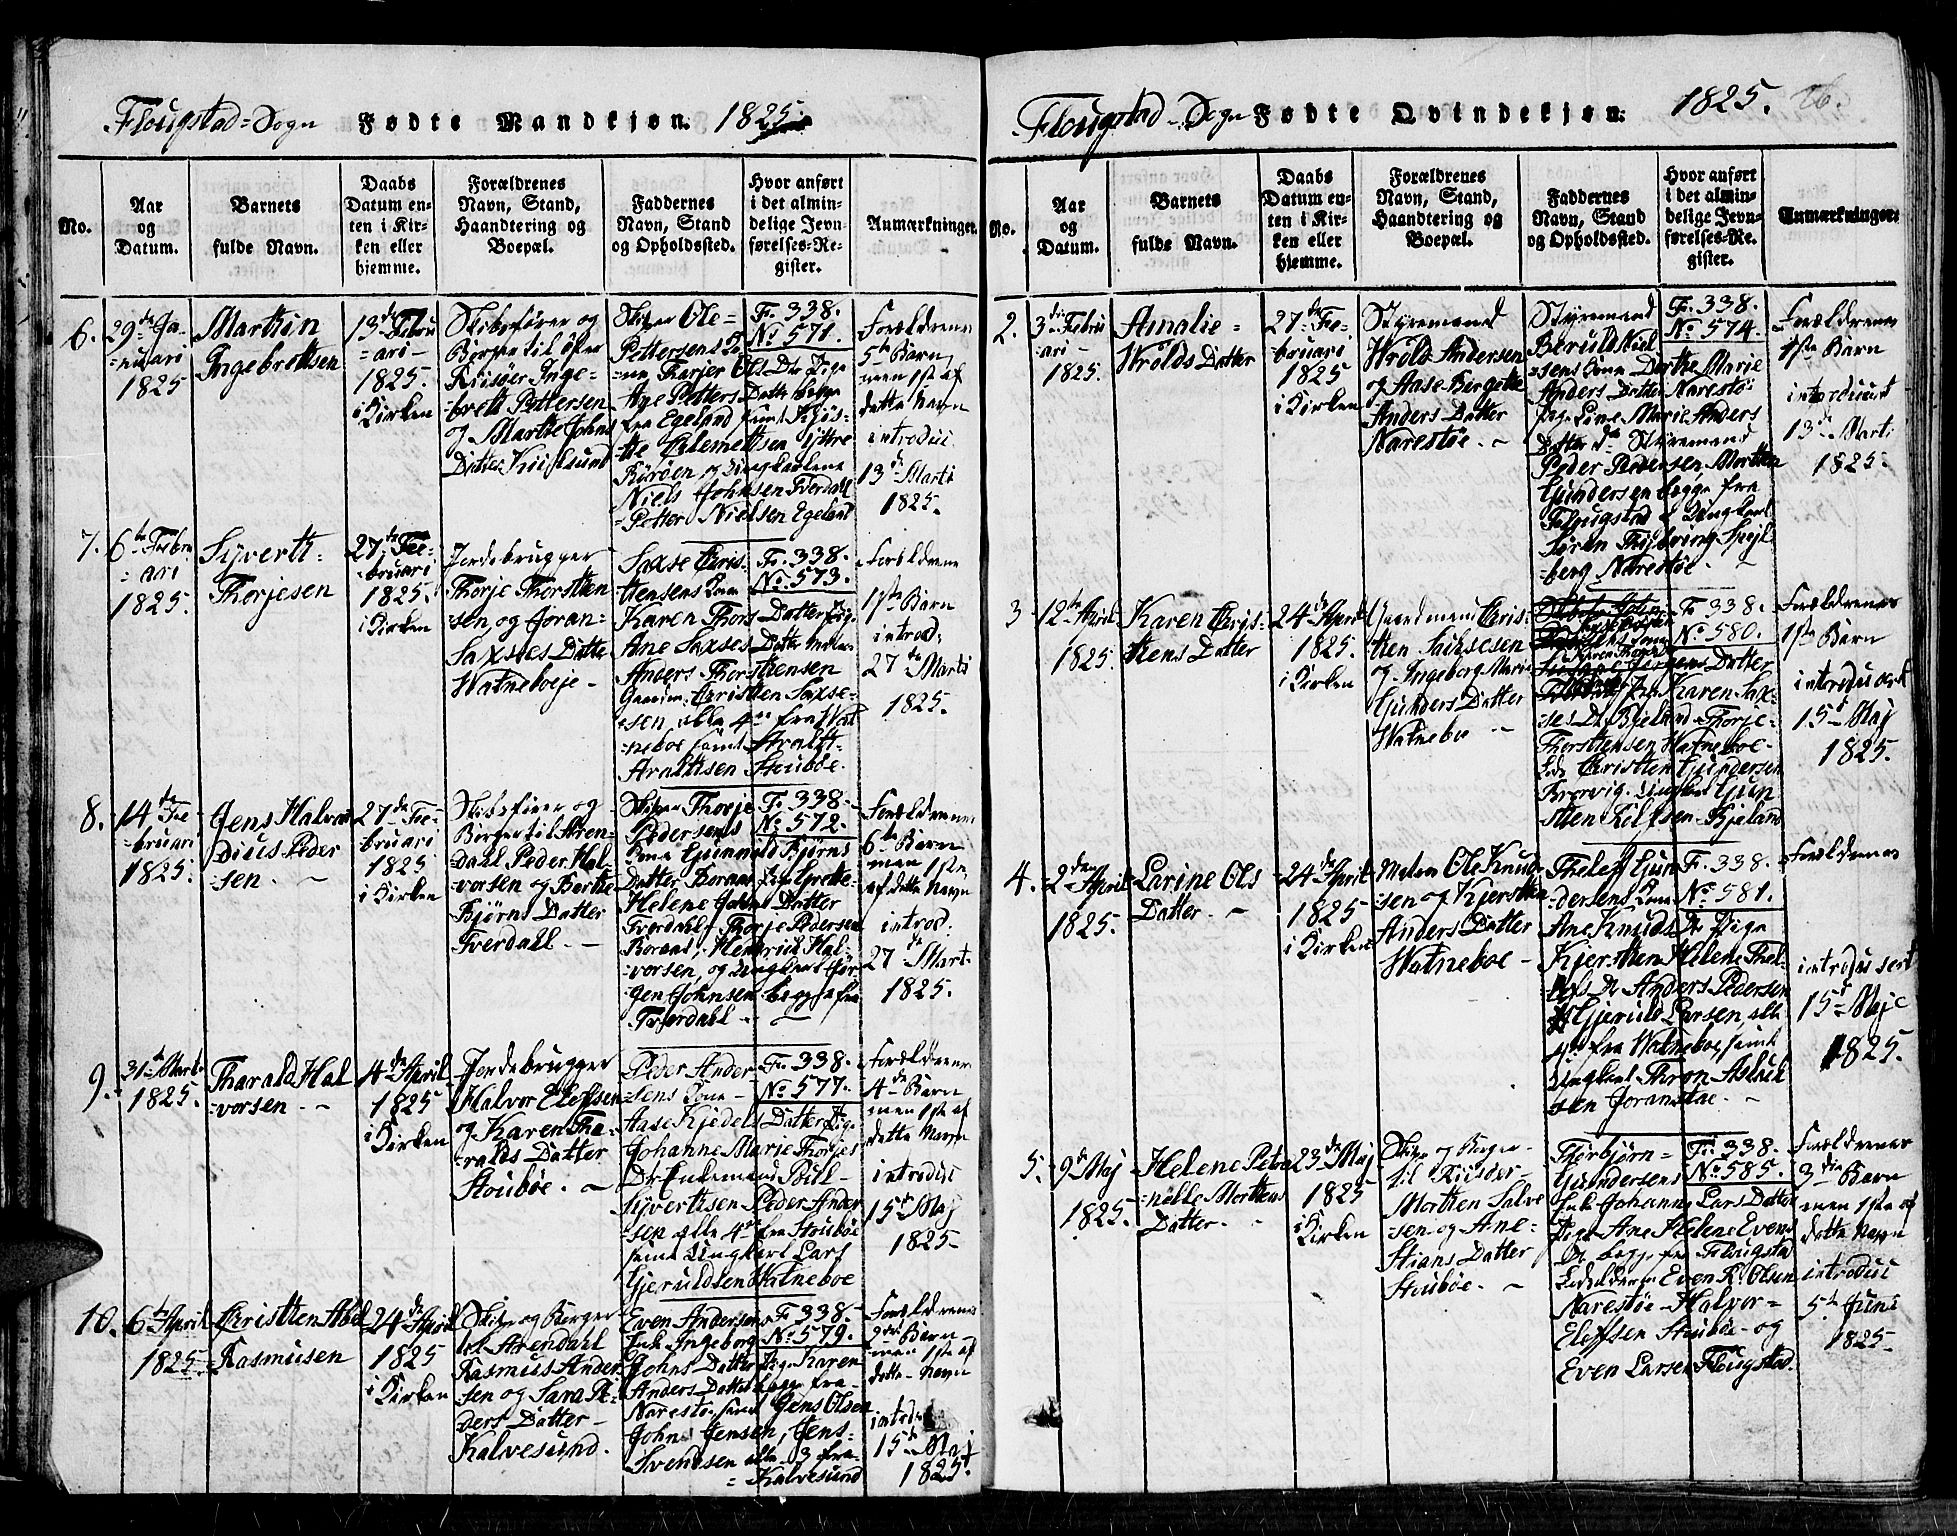 Flougstad-Sogn Fødte Mandkjøn. 1825.
No.
Aar
og
Datum.
Barnets
fulde Navn.
Daabs
Datum en-
ten i Kir-
ken eller
hjemme.
Forældrenes
Navn, Stand,
Haandtering og
Boepæl.
Faddernes
Navn, Stand
og Opholdssted.
Hvor anført
i det almin-
delige Jevn-
førelses-Re-
gister.
Anmærkninger.
6.
29de Ja-
-nuari
1825
Marthin
Ingebrethsen
13de Febru
-ari-
1825.
i Kirken
Skibsfører og
Borger til Øster
Riisøer Inge-
brett Pettersen
og Marthe Johns
Datter
Skiper Ole
Pettersens Ko-
ne
Fra Egeland samt
Niels Johnsen Tverdall
Petter Nielsen Egeland
Fr. 338.
No. 571.
Forældrenes
5te Barn
men 1ste af
dette Navn
introduc.
13de Marti
1825.
7.
6te Febru
-ari
1825.
Syverth-
Thorjesen
27de Fe-
-bruari
1825.
i Kirken
Jordebrugger
Thorje Thorsthen
-sen og Joran-
Saxses Datter
Watneboe-
Saxse Chris-
thensens Kone
Karen Thors Datter Pige
Ane Saxses Datter
Anders Thorsthensen
Christhen Saxse-
-sen, alle 4re fra Wat
-neboe samt
Arnthsen Stouböe.
Fr. 338.
No. 573.
Forældrene
1ste Barn
introd:
27de Marti
1825.
8.
14de Fe
-bruari
1825.
Jens Halvor
Dius Peder
-sen.
27de Fe-
bruari
1825
i Kirken
Skibsfører og
Borger til Aren-
dahl Peder Hal-
vorsen og Berthe
Bjørns Datter
Tverdall.
Skiper Thorje
Pedersens
Kone Gunnild Bjørns
Datter Boraas Pige Grethe-
Helene Johns Datter
Tverdall, Thorje Pedersen
Boraas, Hendrich Hal-
-vorsen, og Ungkarl Jør
-gen Johnsen begge fra
Tverdall
Fr. 338-
No. 572.
Forældrenes
6te Barn
men 1ste
af dette Navn
introd:
27de Mart:
1825.
9.
31te Marti
1825.
Tharald Hal
-vorsen
4de April
1825
i Kirken
Jordebrugger
Halvor Eleffsen
og Karen Tha-
-ralds Datter
Stouböe.
Peder Ander
-sens Kone-
Aase Kjedels Datter Pige
Johanne Marie Thorjes
Dr Enkemand Bull
Syverthsen Peder Ander
sen alle 4re fra Stouböe
samt Ungkarl Lars
Gjeruldsen Watneboe
Fr. 338.
No. 577.
Forældrenes
4de Barn
men 1ste af
dette Navn
introduc
15de Maj
1825-
10.
6te April
1825
Christhen Abel
Rasmusen
24de April
1825
i Kirken
Skiper og Borger
til Arendahl
Rasmus Ander
sen og Sara Pe-
ders Datter-
Kalvesund.
Even Andersens
Enk Ingeborg
Johns Datter Pige Karen
Anders Datter begge fra-
Narestøe samt Jens Olsen
John Jensen, Jens-
Svendsen alle 3 fra-
-Kalvesund
Fr. 338-
No. 579.
Forældrenes
Barn
men 1ste af
dette Navn
introd
15de Maj
1825.
Flougstad-Sogn Fødte Qvindekjøn. 1825. 26.
No.
Aar
og
Datum.
Barnets
fulde Navn.
Daabs
Datum en-
ten i Kir-
ken eller
hjemme.
Forældrenes
Navn, Stand,
Haandtering og
Boepæl.
Faddernes
Navn, Stand
og Opholdssted.
Hvor anført
i det almin-
delige Jevn-
førelses-Re-
gister.
Anmærkninger.
2.
3die Febru
-ari-
1825.
Amalie-
Wrolds Datter
27de Fe-
-bruari
1825
i Kirken
Styremand
Wrold Andersen
og Aase Birgethe
Anders Datter
Narestøe.
Styremand
-sens Kone Dorthe Marie
Anders Datter Narestøe
Pige Line Marie Anders
Datter Do Styremand
Peder Pedersen-Morthen
Gundersen begge fra
Flougstad & Ungkarl
Søren
berg Narestøe.
Fr. 338.
No. 574.
Forældrenes
1ste Barn
introduc
13de Marti
1825.
3
12te April
1825.
Karen Chris-
thens Datter
24de April
1825.
i Kirken
Gaardmand Chris-
then Saksesen
og Ingeborg Marie
Gunders Datter
Watneboe
Datter
Karen Sax-
ses Dr Bjeland-Thorje-
Thorsthensen Watneboe-
Christhen Gundersen
Brorvig. Ungkarl Gun
Bjeland
Fr 338.
No 580.
Forældrenes
1ste Barn
15de Maj
1825.
4.
2den April
1825.
Larine Ols
Datter.
24de April
1825
i Kirken
Matros Ole Knud
-sen og Kjersthen
Anders Datter
Watneboe-
Theleff Gun
-dersens Kone
Ane Knuds Dr Pige
Kjersthen Helene Thel-
-lefs Dr Anders Pedersen
Gjeruld Larsen alle
fra Watneboe, samt
Ungkarl Thron Aslach
sen Joranstae.
Fr. 338.
No 581.
Forældrenes
introdusert
15de Maje
1825.
5.
9de Maj
1825.
Helene Petro
-nelle Morthens
Datter.
23de Maj
1825
i Kirken
Skiper og Borger-
til Riisöer-
Morthen Salve
sen og Ane-
Stians Datter
Stouböe.
Torbjørn-
Gundersens
Enk Johanne Lars Datter
Pige Ane Helene Evens
Dr begge fra Flougstad
Even R. Olsen
Narestøe-Halvor-
Eleffsen Stouböe- og
Even Larsen Flougstad.
Fr. 338.
No. 585.
Forældrenes
3die Barn
men 1ste af
dette Navn
introduc
5te Juni
1825-